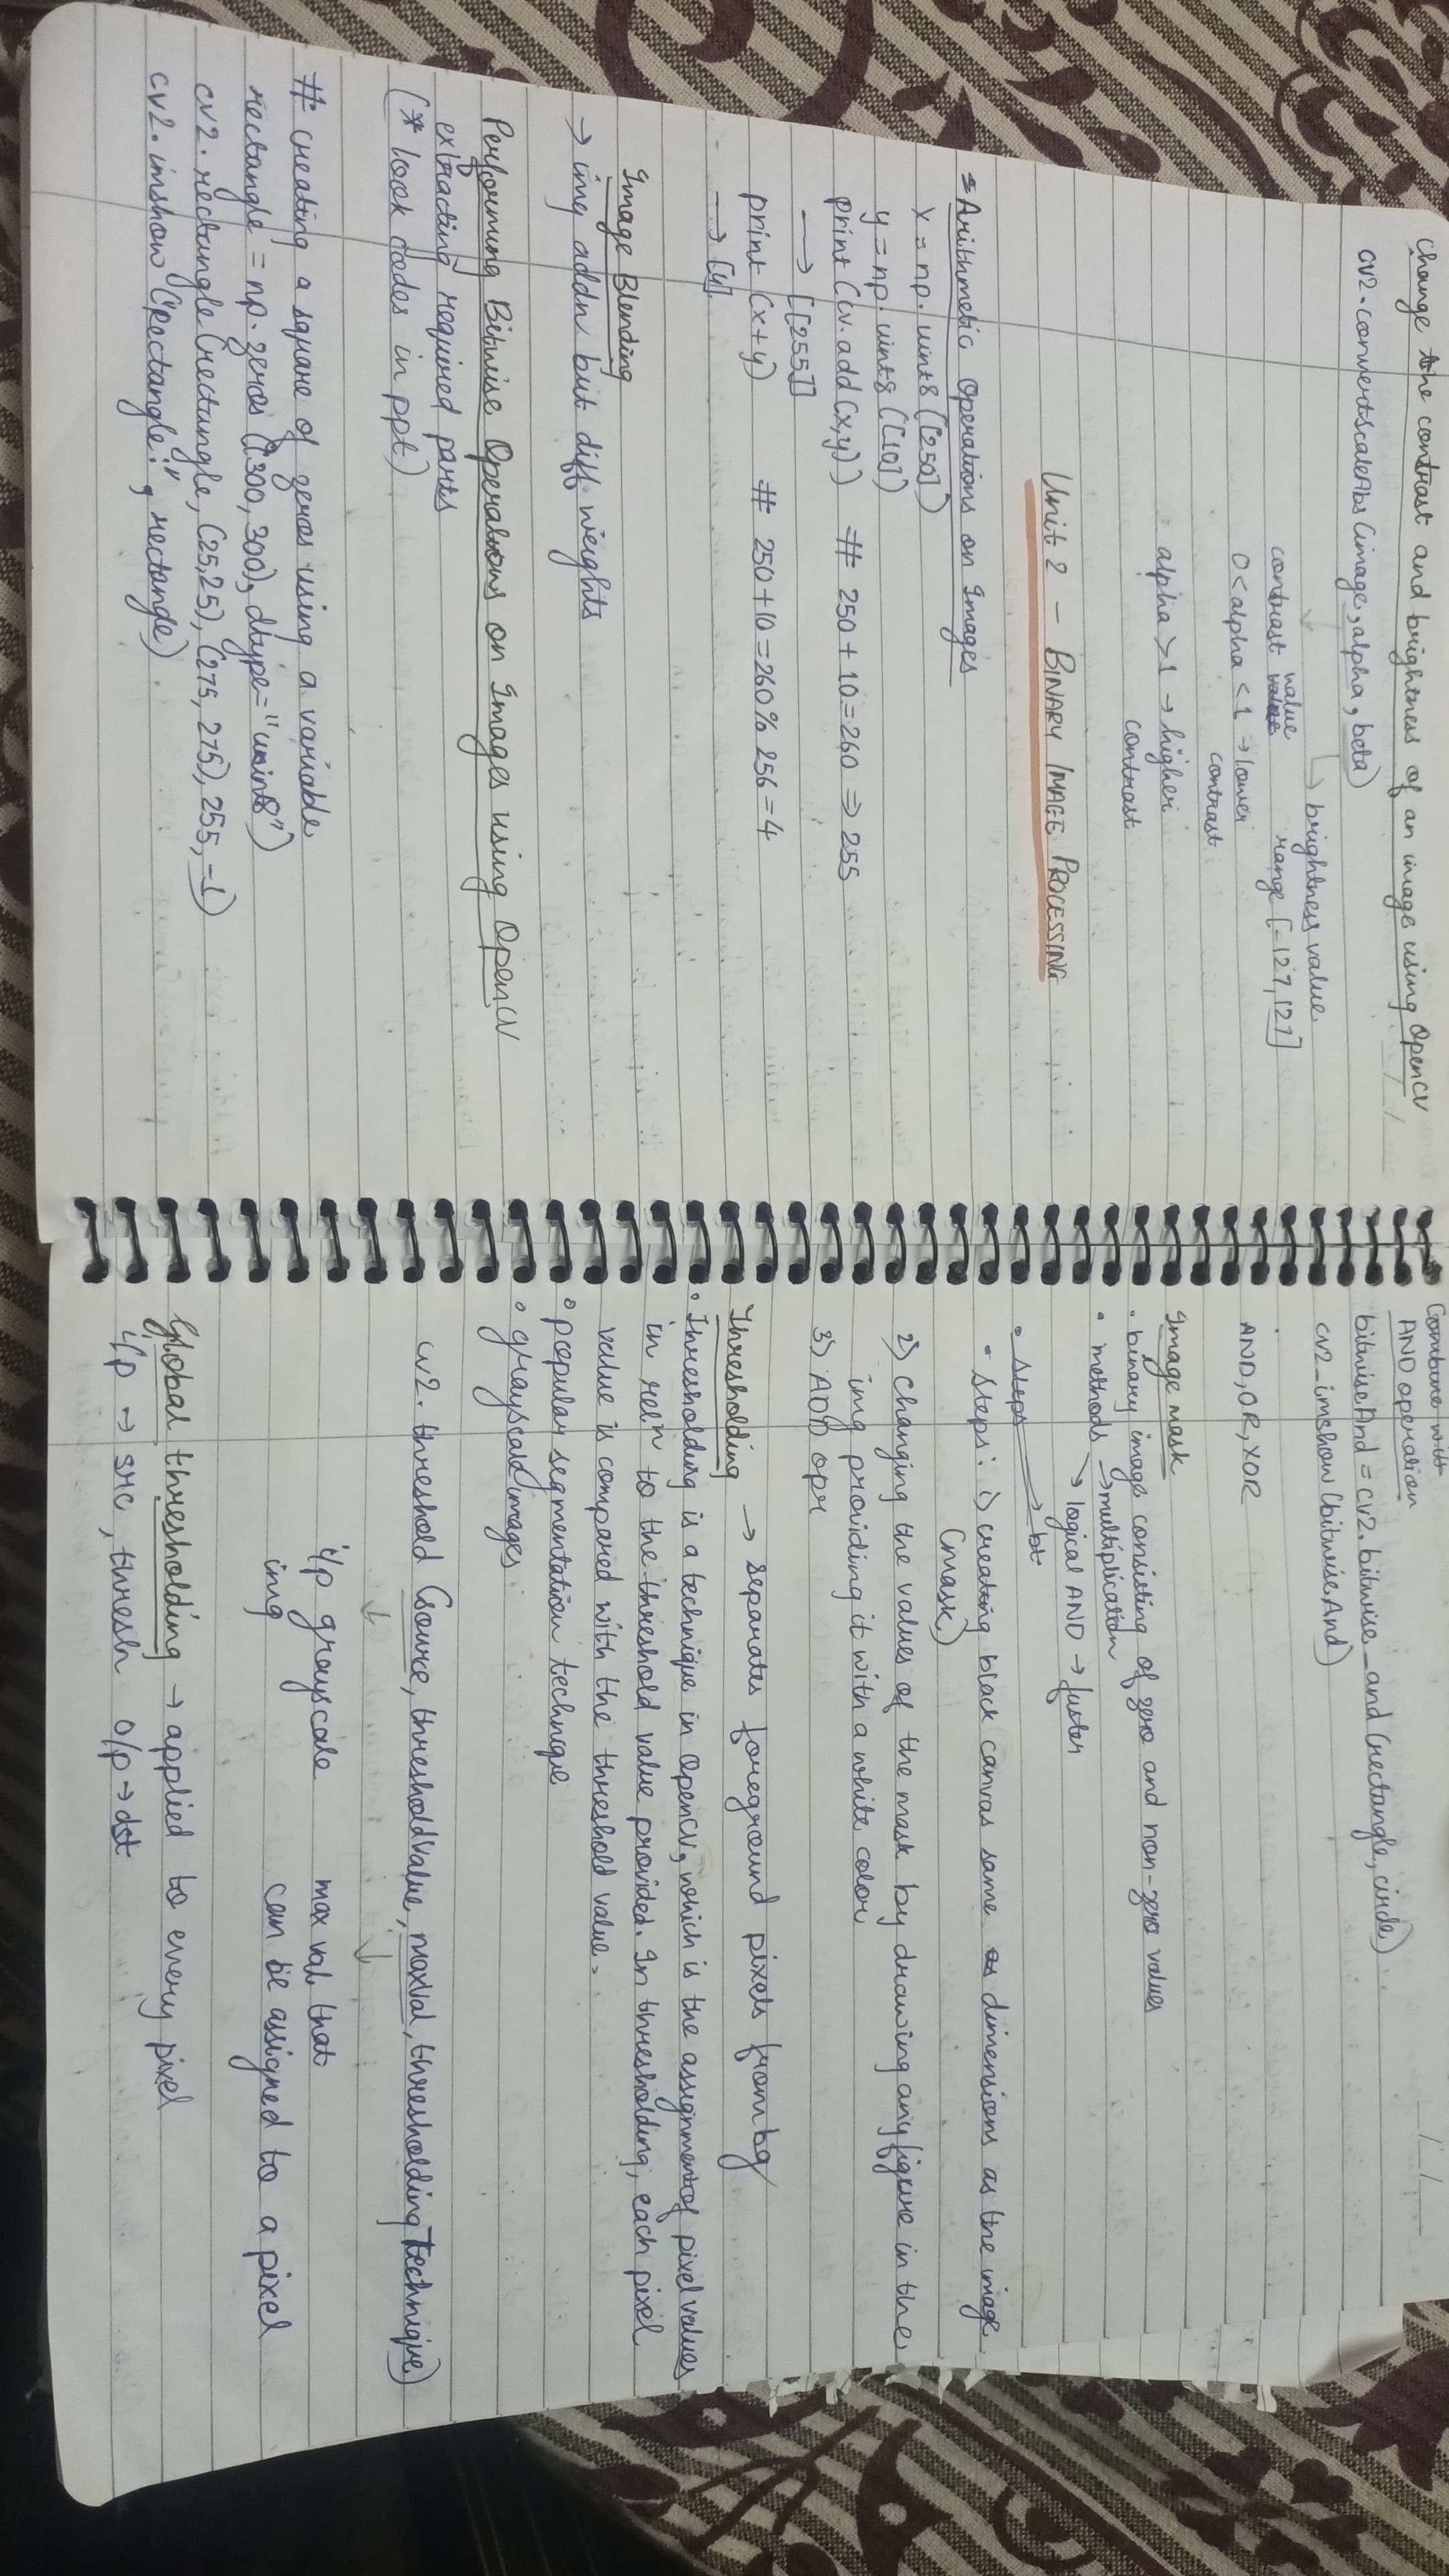 Change the contrast and brightness of an image using OpenCV
cv2.convertScaleAbs (image, alpha, beta)
brightness value
range [-127, 127]
contrast value
0 < alpha < 1 → lower
contrast
alpha > 1 → higher
contrast
Unit 2 – BINARY IMAGE PROCESSING
Arithmetic Operations on Images
x = np. uint8 ([250])
y = np. uint8 ([10])
print (cv. add (x,y)) # 250 + 10 = 260 ⇒ 255
→ [[255]]
print (x+y) # 250+10 = 260 % 256 = 4
→ [4]
Image Blending
→ img addn but diff weights
Performing Bitwise Operations on Images using OpenCV
extracting required parts
(* look codes in ppt)
# creating a square of zeros using a variable
rectangle = np. zeros ((300, 300), dtype = "uint8")
cv2. rectangle (rectangle, (25,25), (275, 275), 255, -1)
cv2. imshow ("Rectangle:", rectangle)
Combine with
AND operation
bitwiseAnd = cv2. bitwise_and (rectangle, circle)
cv2_imshow (bitwiseAnd)
AND, OR, XOR
Image mask
• binary image consisting of zero and non-zero values
• methods → multiplication
→ logical AND → faster
• Steps → bt
• Steps: 1) creating black canvas same as dimensions as the image
(mask)
2) Changing the values of the mask by drawing any figure in the
img providing it with a white color
3) ADD opr
Thresholding → separates foreground pixels from bg
• Thresholding is a technique in OpenCV, which is the assignment of pixel values
in reln to the threshold value provided. In thresholding, each pixel
value is compared with the threshold value.
• popular segmentation technique
• grayscale images
cv2. threshold (source, thresholdValue, maxVal, thresholding Technique)
i/p grayscale max val that
img can be assigned to a pixel
Global thresholding → applied to every pixel
i/p → src, thresh o/p → dst